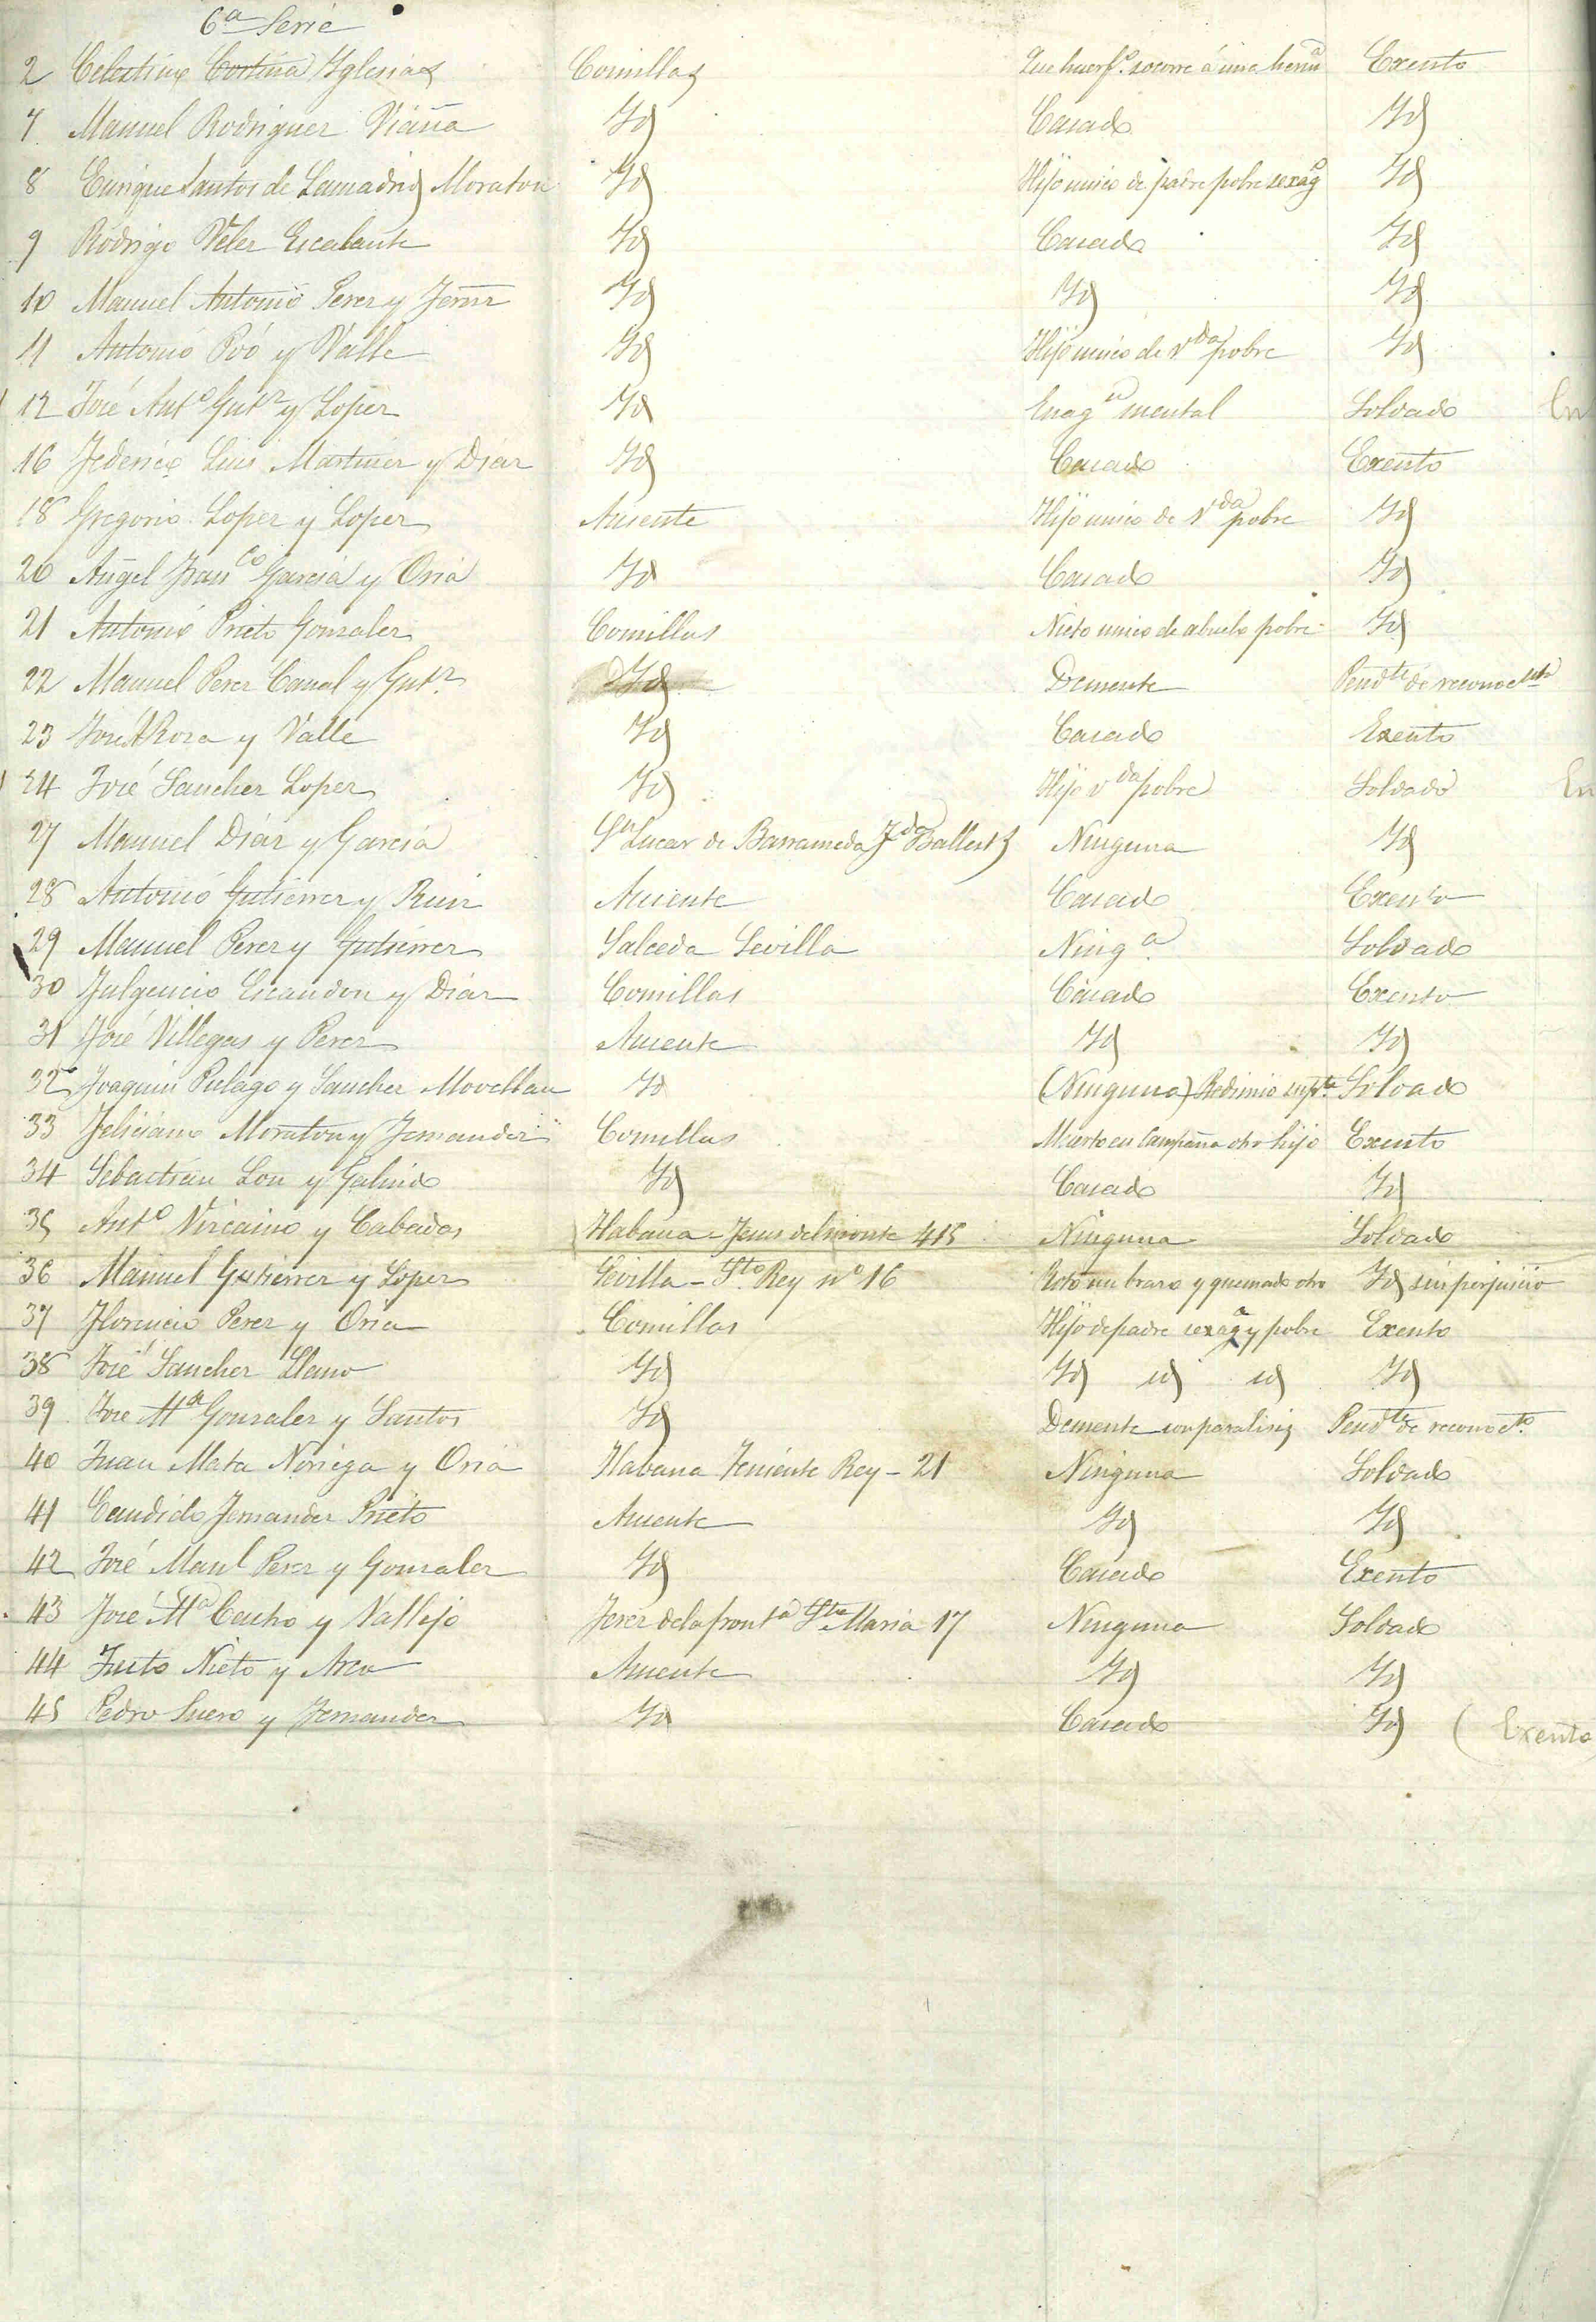 6ª Serie
2 Celestino Cortina Yglesias Comillas Que huerfº socorre á una hermª Exento
7 Manuel Rodriguez Viaña Yd Casado Yd
8 Enrique Santos de Lamadrid Moraton Yd Hijo unico de padre pobre sexagº Yd
9 Rodrigo Velez Escalante Yd Casado Yd
10 Manuel Antonio Perez y Fernz Yd Yd Yd
11 Antonio Poó y Valle Yd Hijo unico de vda pobre Yd
12 José Antº Gutz y Lopez Yd Enagon mental Soldado En
16 Federico Luis Martinez y Diaz Yd Casado Exento
18 Gregorio Lopez y Lopez Ausente Hijo unico de vda pobre Yd
20 Angel Franco Garcia y Oria Yd Casado Yd
21 Antonio Prieto Gonzalez Comillas Nieto unico de abuelo pobre Yd
22 Manuel Perez Canal y Gutz Yd Demente Pendte de reconocmto
23 José Roza y Valle Yd Casado Exento
24 José Sanchez Lopez Yd Hijo vda pobre Soldado En
27 Manuel Diaz y Garcia Sn Lucar de Barrameda Ninguna Yd
28 Antonio Gutierrez y Ruiz Ausente Casado Exento
29 Manuel Perez y Gutierrez Salceda Sevilla Ningª Soldado
30 Fulgencio Escandon y Diaz Comillas Casado Exento
31 José Villegas y Perez Ausente Yd Yd
32 Joaquin Pielago y Sanchez Movellan Yd (Ninguna) Redimio Soldado
33 Feliciano Moraton y Fernandez Comillas Muerto en Campaña otro hijo Exento
34 Sebastian Lon y Galindo Yd Casado Yd
35 Antº Vizcaino y Cabadas Habana - Jesus del monte 415 Ninguna Soldado
36 Manuel Gutierrez y Lopez Sevilla - Sto Rey nº 16 Roto un brazo y quemado otro Yd sin perjuicio
37 Florencio Perez y Oria Comillas Hijo de padre sexagº y pobre Exento
38 José Sanchez Llano Yd Yd id id Yd
39 José Mª Gonzalez y Santos Yd Demente con paralisis Pendte de reconocto
40 Juan Mata Noriega y Oria Habana Teniente Rey - 21 Ninguna Soldado
41 Candido Fernandez Prieto Ausente Yd Yd
42 José Manl Perez y Gonzalez Yd Casado Exento
43 José Mª Cacho y Vallejo Jerez de la frontª Sta Maria 17 Ninguna Soldado
44 Justo Nieto y Arce Ausente Yd Yd
45 Pedro Suero y Fernandez Yd Casado Yd (Exento